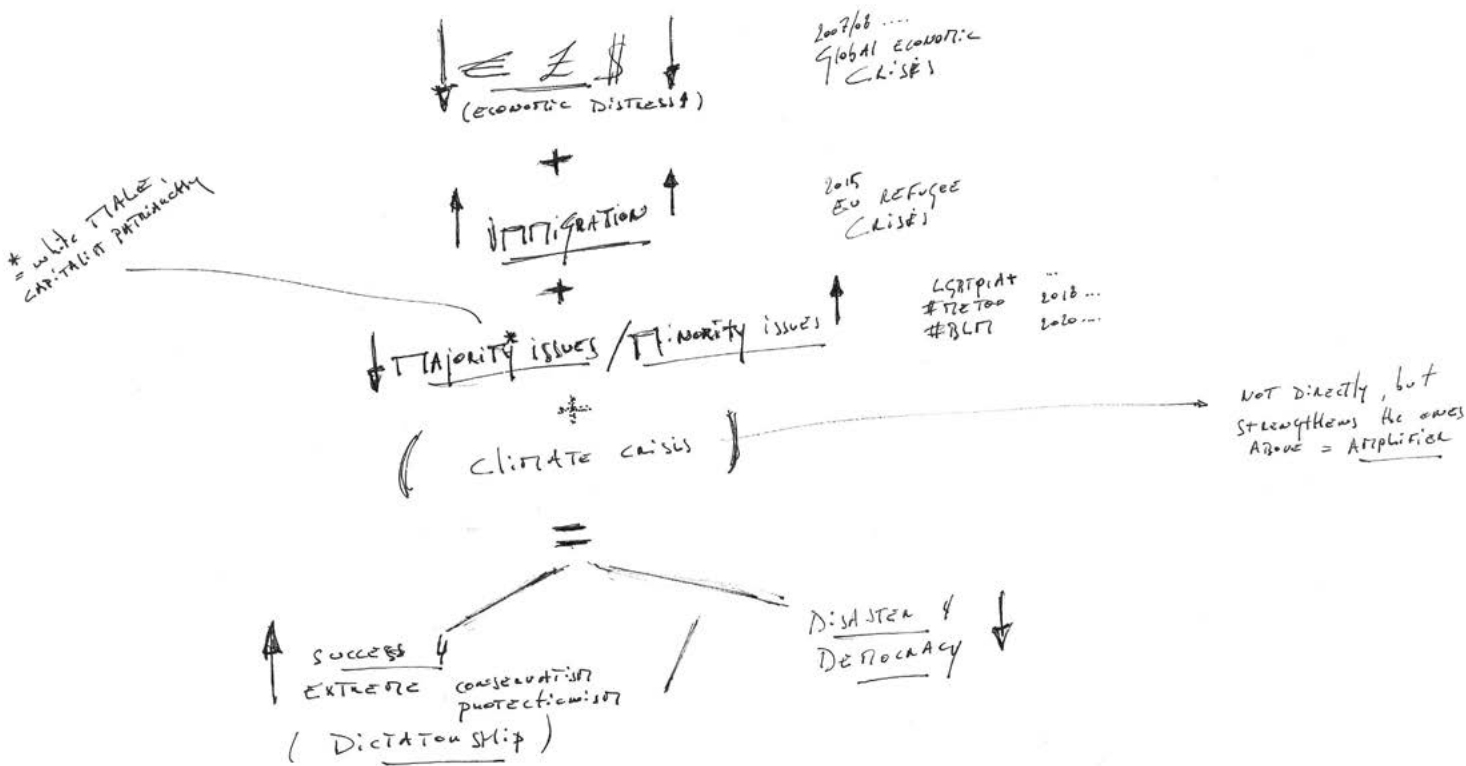 € £ $
(ECONOMIC DISTRESS↑)
2007/08 ....
GLOBAL ECONOMIC
CRISES
+
IMMIGRATION
2015
EU REFUGEE
CRISES
* = white MALE,
CAPITALIST PATRIARCHY
+
MAJORITY* issues / MINORITY issues
LGBTQIA+ ...
#METOO 2018 ...
#BLM 2020 ...
+
( CLIMATE CRISIS )
NOT DIRECTLY, but
STRENGTHENS the ONES
ABOVE = AMPLIFIER
=
SUCCESS 4
EXTREME CONSERVATISM
PROTECTIONISM
( DICTATORSHIP )
/
DISASTER 4
DEMOCRACY